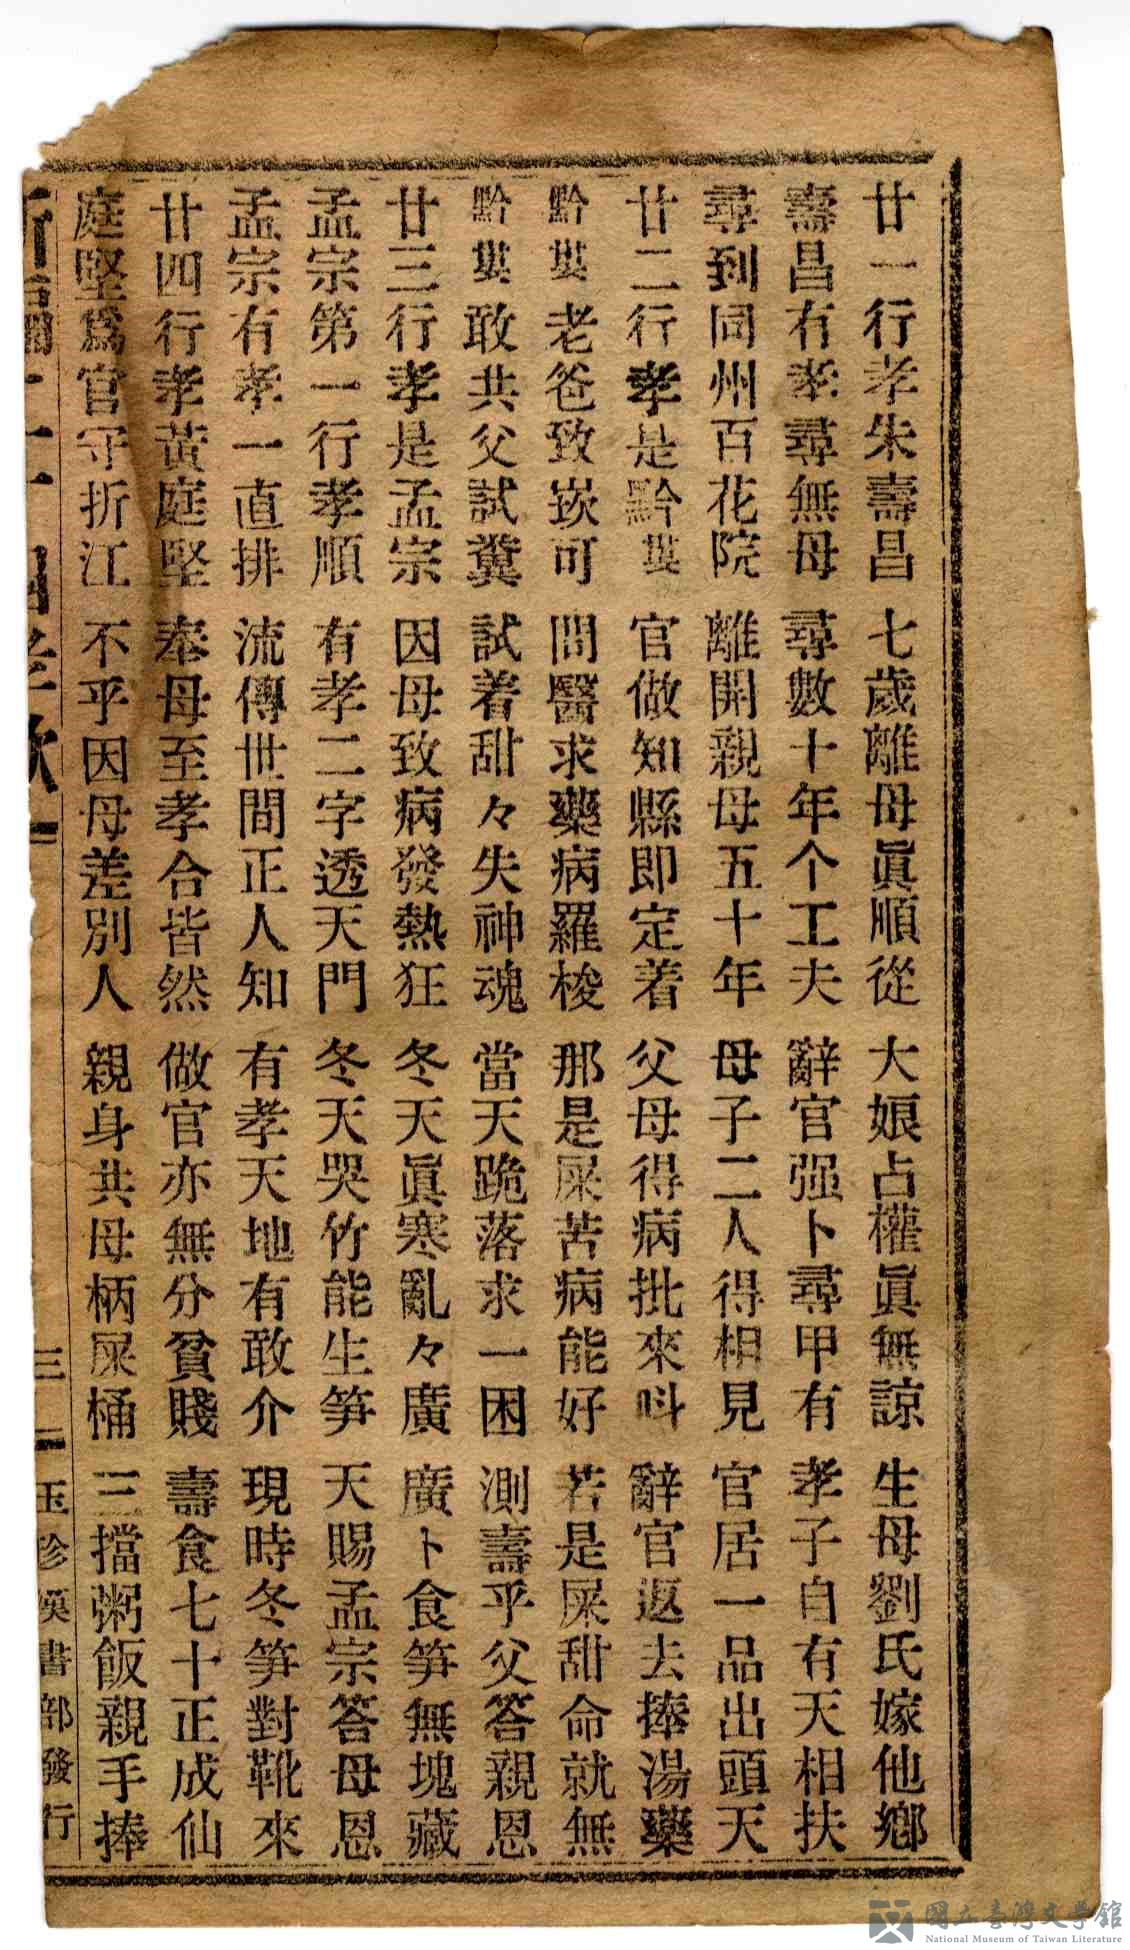 廿一行孝朱壽昌 七歲離母眞順從 大娘占權眞無諒 生母劉氏嫁他鄉
壽昌有孝尋無母 尋數十年个工夫 辭官强卜尋甲有 孝子自有天相扶
尋到同州百花院 離開親母五十年 母子二人得相見 官居一品出頭天
廿二行孝是黔婁 官做知縣即定着 父母得病批來呌 辭官返去捧湯藥
黔婁老爸致崁可 問醫求藥病羅梭 那是屎苦病能好 若是屎甜命就無
黔婁敢共父試糞 試着甜々失神魂 當天跪落求一困 測壽乎父答親恩
廿三行孝是孟宗 因母致病發熱狂 冬天眞寒亂々廣 廣卜食笋無塊藏
孟宗第一行孝順 有孝二字透天門 冬天哭竹能生笋 天賜孟宗答母恩
孟宗有孝一直排 流傳世間正人知 有孝天地有敢介 現時冬笋對靴來
廿四行孝黃庭堅 奉母至孝合皆然 做官亦無分貧賤 壽食七十正成仙
庭堅爲官守折江 不乎因母差別人 親身共母柄屎桶 三擋粥飯親手捧
二十四孝歌 三 玉珍漢書部發行
國立臺灣文學館
National Museum of Taiwan Literature